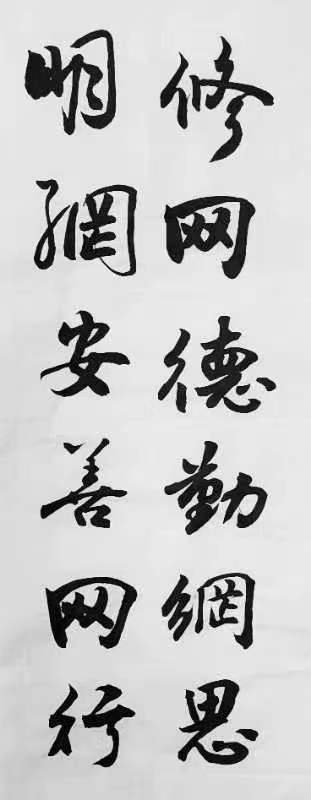 修网德勤網思
明網安善网行